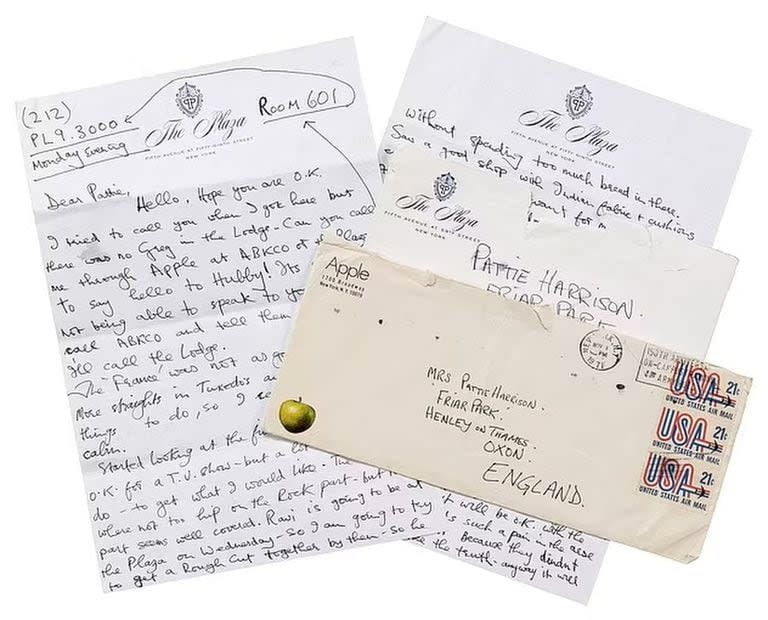 (212)
PL9.3000
Monday Evening
The Plaza
FIFTH AVENUE AT FIFTY-NINTH STREET
NEW YORK
ROOM 601
Dear Pattie,
Hello, Hope you are O.K.
I tried to call you when I got here but
there was no Greg in the Lodge - Can you call
me through Apple at ABKCO or the Plaza
to say hello to Hubby! Its
not being able to speak to yo
call ABKCO and tell them
I'll call the Lodge.
The 'France' was not as go
More straights in Tuxedo's a
things to do, so I
calm.
Started looking at the fi
O.K. for a T.V. show - but a lot
do - to get what I would like. The
where not too hip on the Rock part - but
part seems well covered. Ravi is going to be at
the Plaza on Wednesday - so I am going to try
to get a Rough Cut together by then - so he
The Plaza
FIFTH AVENUE AT FIFTY-NINTH STREET
NEW YORK
without spending too much bread in there.
Saw a good shop with Indian fabric + cushions
want for
it will be O.K. with the
is such a pain in the arse
Because they didn't
the truth - anyway it will
The Plaza
FIFTH AVENUE AT 59TH STREET
NEW YORK
PATTIE HARRISON.
FRIAR PARK
Apple
1700 Broadway
New York, N.Y. 10019
MRS PATTIE HARRISON.
'FRIAR PARK'.
HENLEY ON THAMES
OXON.
ENGLAND.
NOV
PM
1971
USA 21c
UNITED STATES AIR MAIL
USA 21c
UNITED STATES AIR MAIL
USA 21c
UNITED STATES AIR MAIL